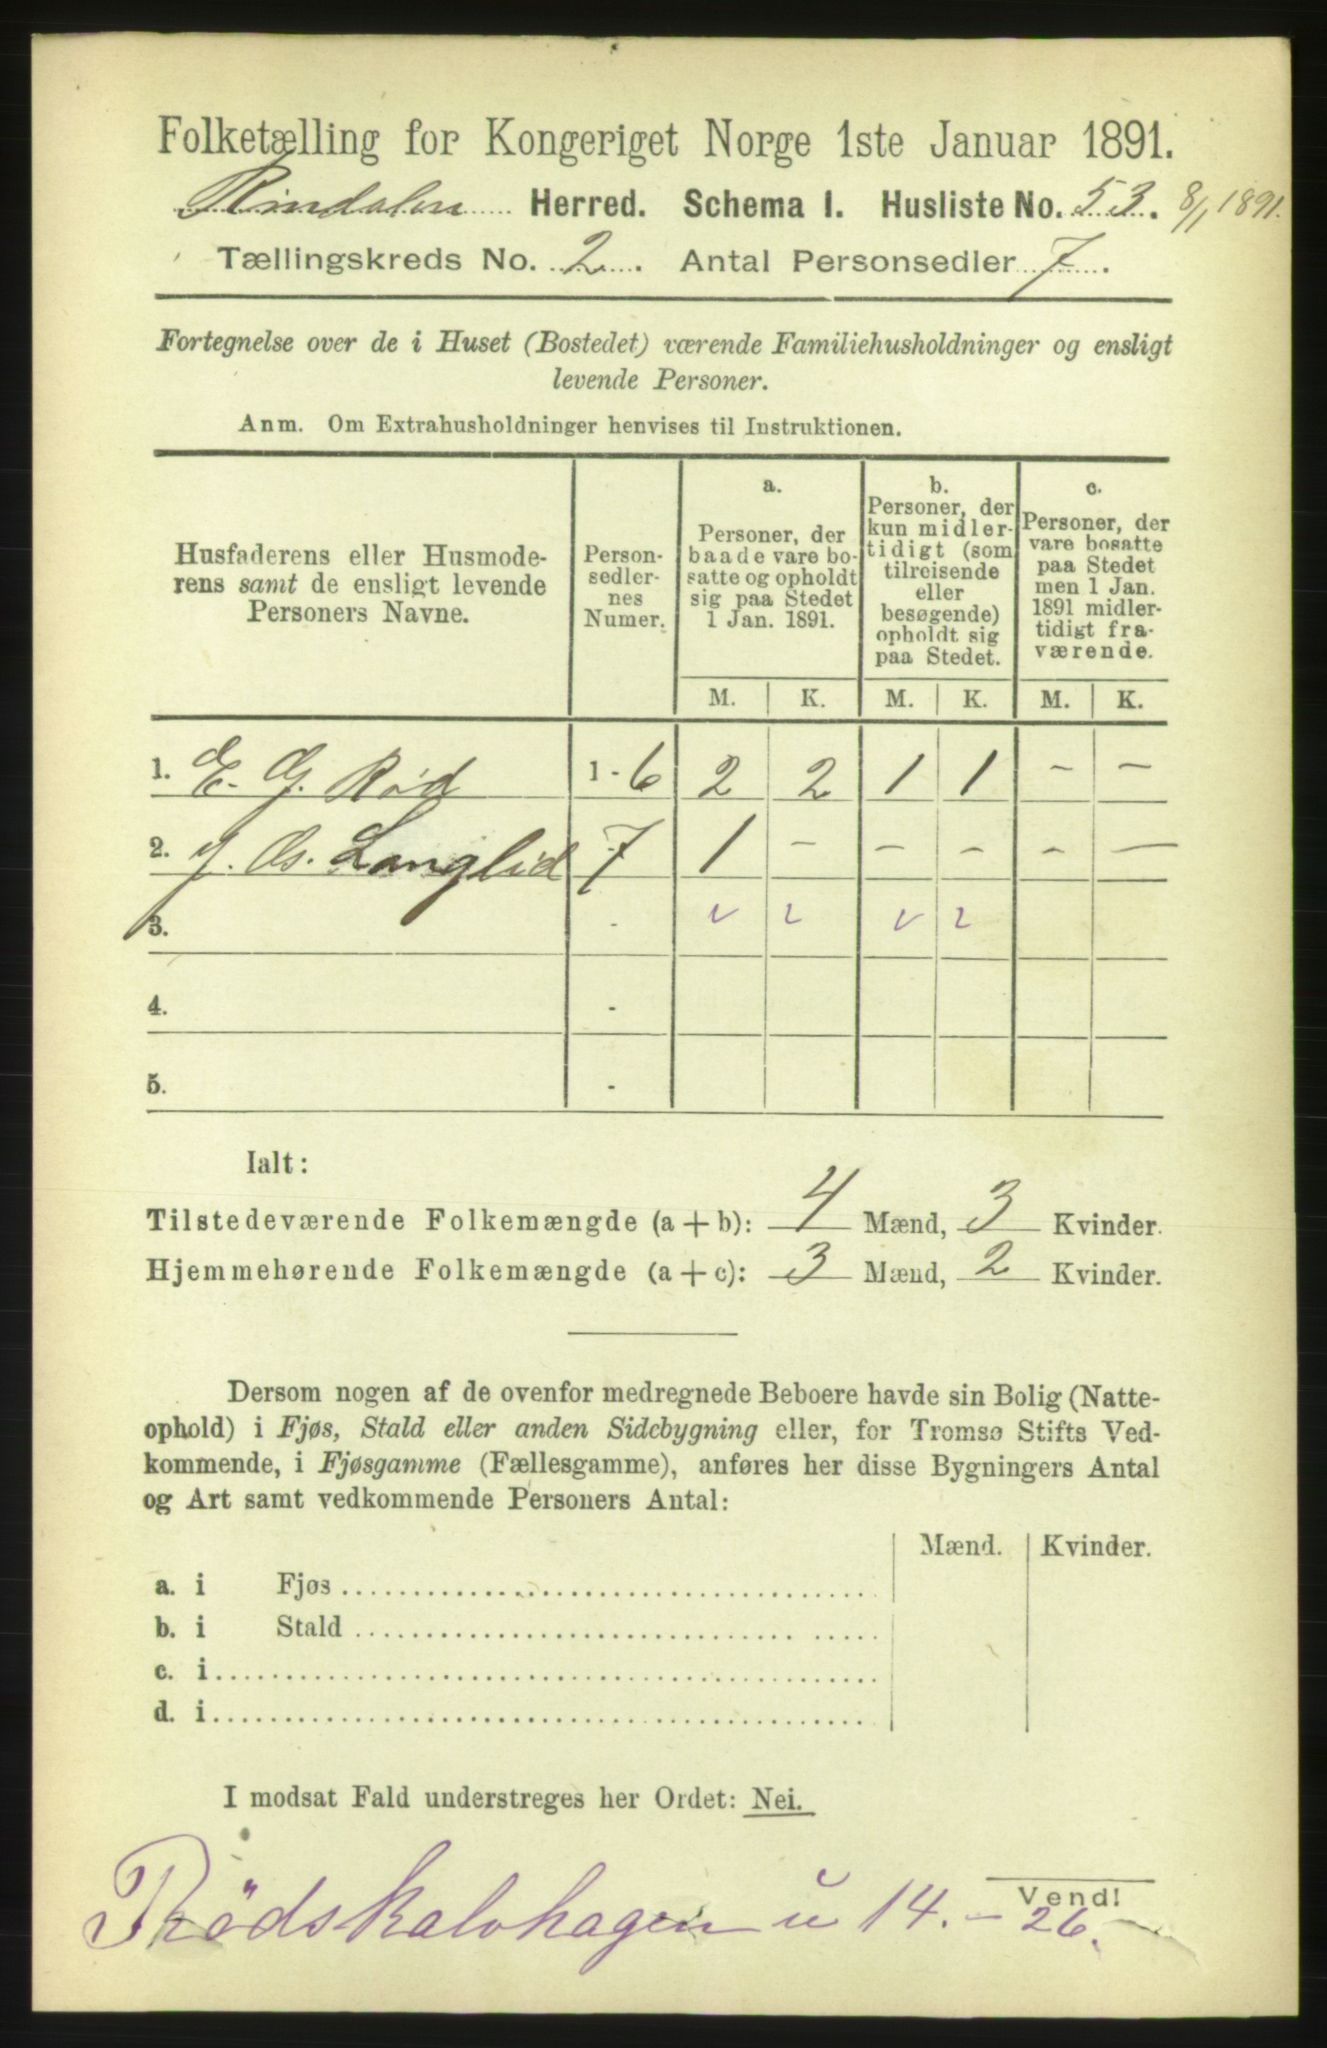 Folketælling for Kongeriget Norge 1ste Januar 1891.
Rindalen Herred. Schema I. Husliste No. 53. 8/1 1891.
Tællingskreds No. 2. Antal Personsedler 7.
Fortegnelse over de i Huset (Bostedet) værende Familiehusholdninger og ensligt
levende Personer.
Anm. Om Extrahusholdninger henvises til Instruktionen.
Husfaderens eller Husmode-
rens samt de ensligt levende
Personers Navne.
Person-
sedler-
nes
Numer.
a.
Personer, der
baade vare bo-
satte og opholdt
sig paa Stedet
1 Jan. 1891.
b.
Personer, der
kun midler-
tidigt (som
tilreisende
eller
besøgende)
opholdt sig
paa Stedet.
c.
Personer, der
vare bosatte
paa Stedet
men 1 Jan.
1891 midler-
tidigt fra-
værende.
M. K. M. K. M. K.
1. E. G. Rød 1 - 6 2 2 1 1 - -
2. J. Os. Langlid 7 1 - - - - -
3. -
4. -
5. -
Ialt:
Tilstedeværende Folkemængde (a + b): 4 Mænd, 3 Kvinder.
Hjemmehørende Folkemængde (a + c): 3 Mænd, 2 Kvinder.
Dersom nogen af de ovenfor medregnede Beboere havde sin Bolig (Natte-
ophold) i Fjøs, Stald eller anden Sidebygning eller, for Tromsø Stifts Ved-
kommende, i Fjøsgamme (Fællesgamme), anføres her disse Bygningers Antal
og Art samt vedkommende Personers Antal:
Mænd. Kvinder.
a. i Fjøs
b. i Stald
c. i
d. i
I modsat Fald understreges her Ordet: Nei.
Vend!
Rödskalvhagen u 14. - 26.